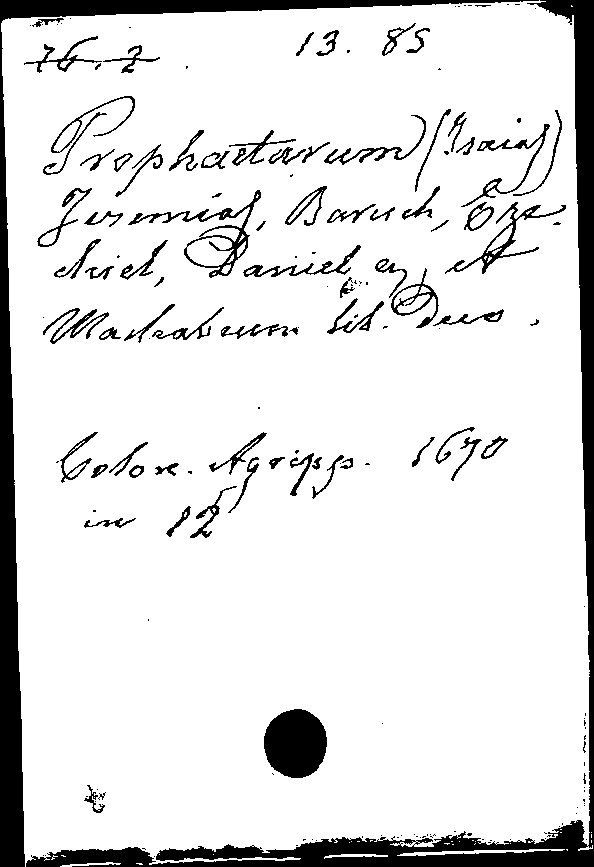 76. 2 13. 85
Prophaetarum (Isaias)
Jeremias, Baruch, Eze-
chiel, Daniel et
Machabeum lib. Duo.
Colon. Agripp. 1670
in 12